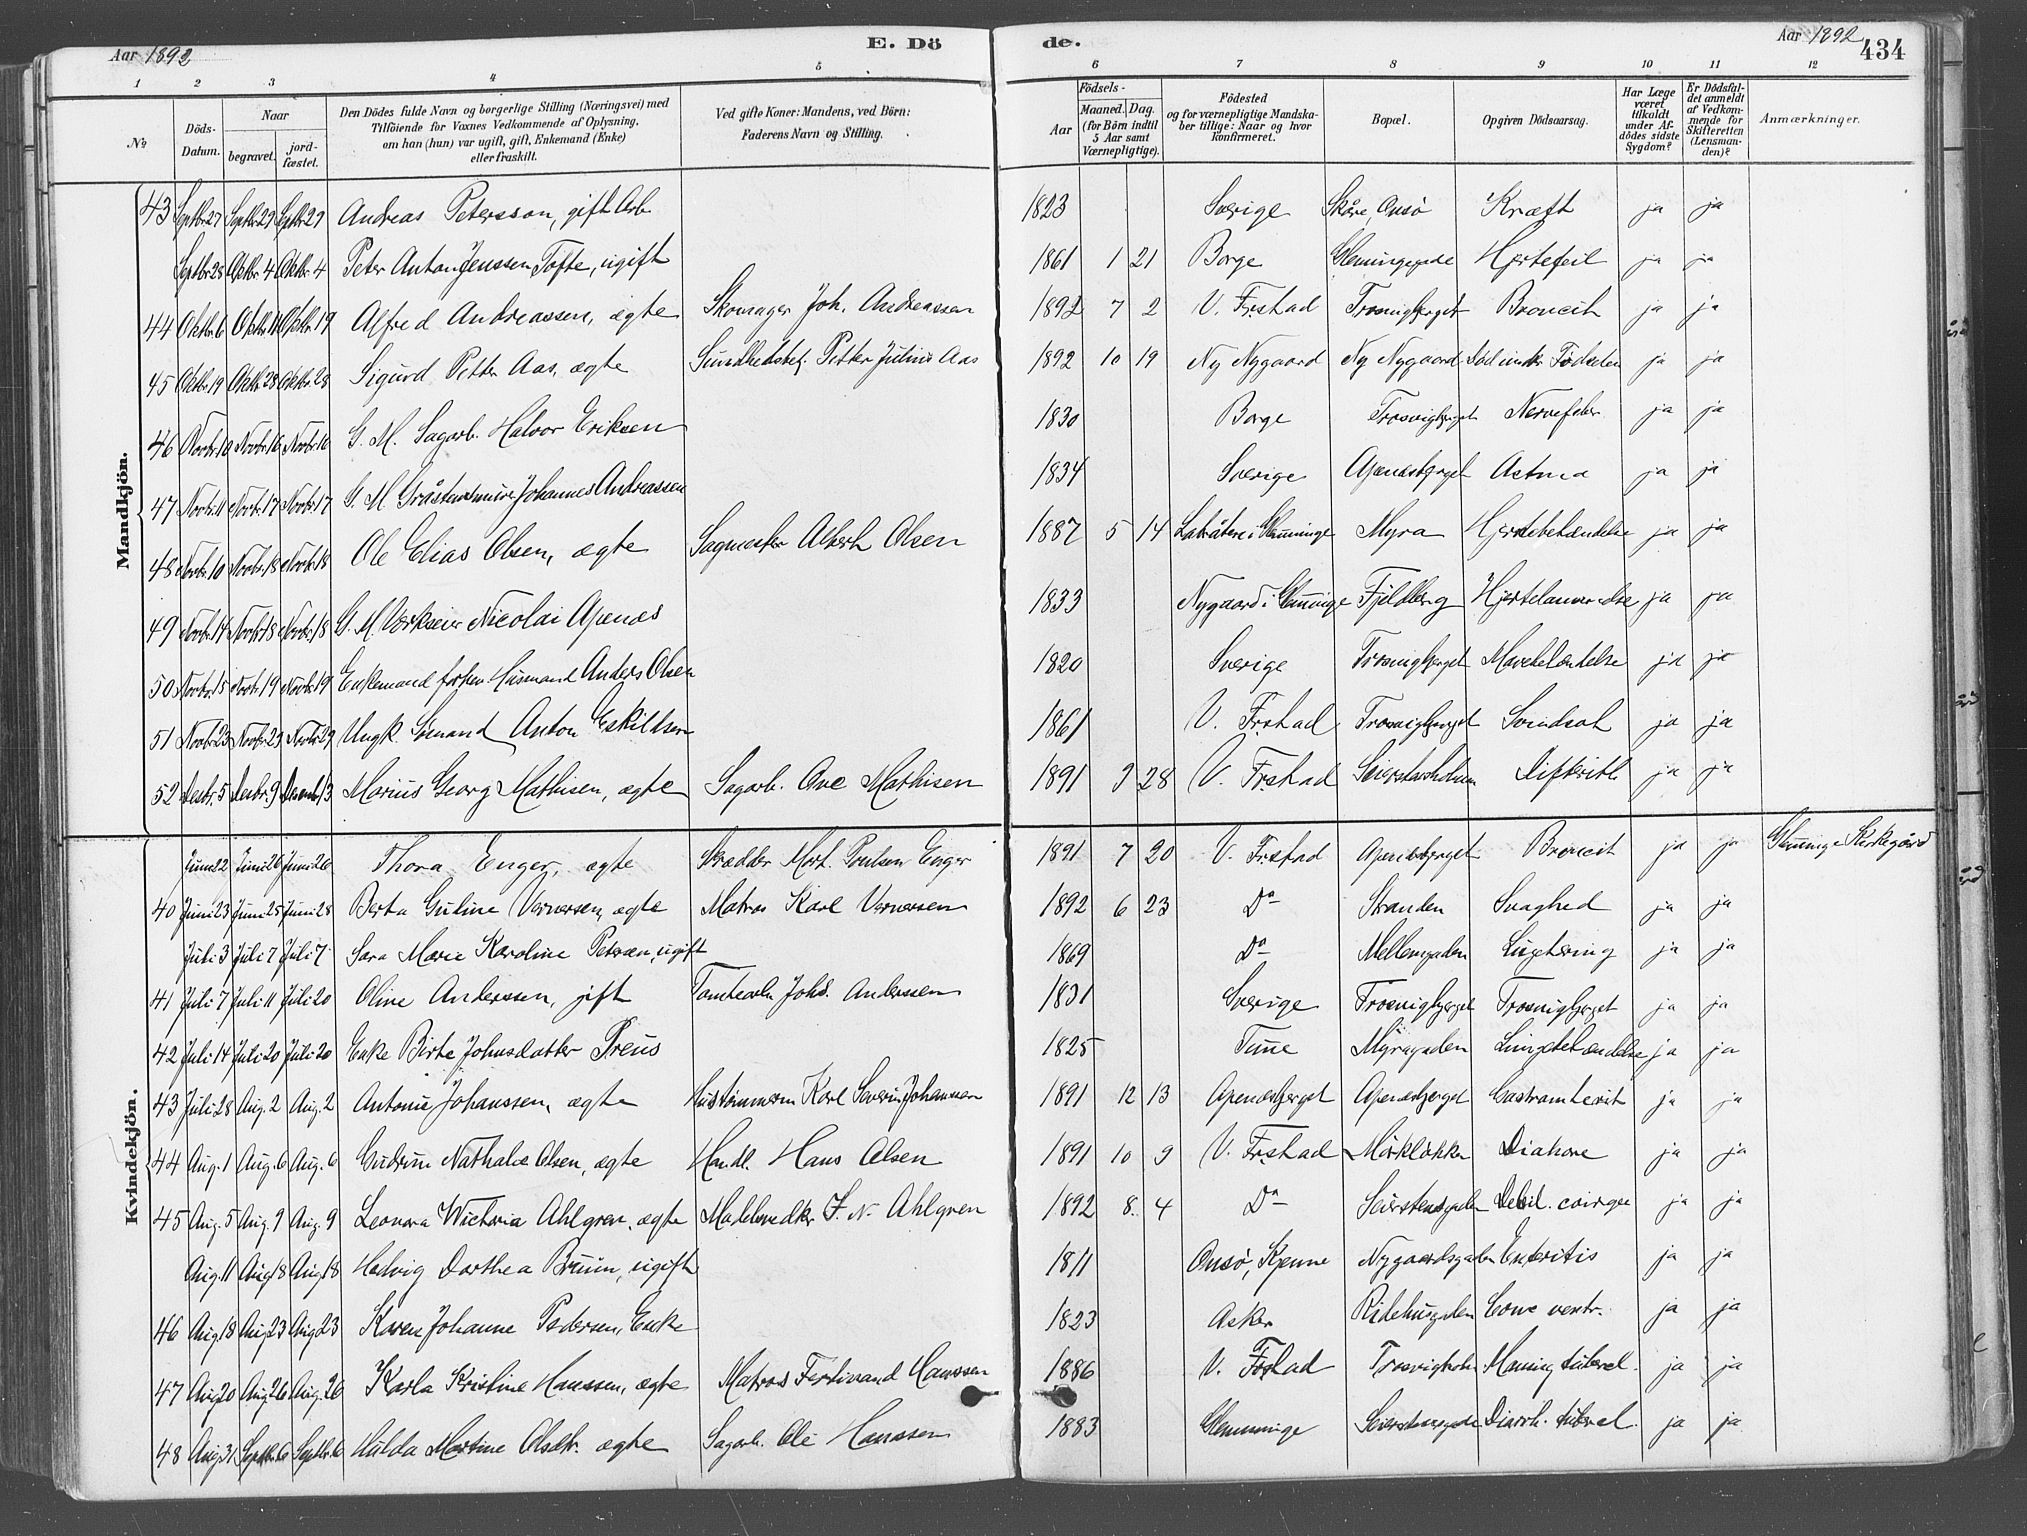 Aar 1892 E. Dö de. Aar 1892 434
1 2 3 4 5 6 7 8 9 10 11 12
№ Döds-Datum. Naar begravet. jord-fæstet. Den Dödes fulde Navn og borgerlige Stilling (Næringsvei) med Tilföiende for Voxnes Vedkommende af Oplysning, om han (hun) var ugift, gift, Enkemand (Enke) eller fraskilt. Ved gifte Koner: Mandens, ved Börn: Faderens Navn og Stilling. Födsels- Aar Maaned. Dag. (for Börn indtil 5 Aar samt Værnepligtige). Födested og for værnepligtige Mandskaber tillige: Naar og hvor konfirmeret. Bopæl. Opgiven Dödsaarsag. Har Læge været tilkaldt under Afdödes sidste Sygdom? Er Dödsfaldet anmeldt af Vedkommende for Skifteretten (Lensmanden)? Anmærkninger.
Mandkjön.
43 Septbr 27 Septbr 29 Septbr 29 Andreas Petersson, gift Arb. 1823 Sverige Skåre, Onsö Kræft ja ja
Septbr 28 Oktbr 4 Oktbr 4 Peter Anton Jenssen Tofte, ugift 1861 1 21 Borge Glemmingegade Hjertefeil ja ja
44 Oktbr 6 Oktbr Oktbr 19 Alfred Andreassen, ægte Skomager Joh. Andreassen 1892 7 2 V. Frstad Trosvigberget Broncit ja ja
45 Oktbr 19 Oktbr 28 Oktbr 28 Sigurd Petter Aas, ægte Sundhedsbetj. Petter Julius Aas 1892 10 19 Ny Nygaard Ny Nygaard Död under Födselen ja ja
46 Novbr 10 Novbr 16 Novbr 16 G. M. Sagarb. Halvor Eriksen 1830 Borge Trosvigberget Nervefeber ja ja
47 Novbr 11 Novbr 17 Novbr 17 G. M. Gråstensmurer Johannes Andreassen 1834 Sverige Apenesberget Astma ja ja
48 Novbr 10 Novbr 18 Novbr 18 Ole Elias Olsen, ægte Sagmester Albert Olsen 1887 5 14 Labråten i Glemminge Myra Hjernebetændelse ja ja
49 Novbr 14 Novbr 18 Novbr 18 G. M. Værkseier Nicolai Apenæs 1833 Nygaard i Glemminge Fjeldberg Hjertelammelse ja ja
50 Novbr 15 Novbr 19 Novbr 19 Enkemand forhen Husmand Anders Olsen 1820 Sverige Trosvigberget Mavebetændelse ja ja
51 Novbr 23 Novbr 29 Novbr 29 Ungk. Sömand Anton Eskildsen 1861 V. Frstad Trosvigberget Svindsot ja ja
52 Decbr. 5 Decbr. 9 Decemb 13 Marius Georg Mathisen, ægte Sagarb. Ove Mathisen 1891 9 28 V. Frstad Seierstenholmen Difterith ja ja
Kvindekjön.
Juni 22 Juni 26 Juni 26 Thora Enger, ægte Skrædder Mort. Poulsen Enger 1891 7 20 V. Frstad Apenesberget Broncit ja ja Glemminge Kirkegård
40 Juni 23 Juni 25 Juni 28 Berta Guline Vernersen, ægte Matros Karl Vernersen 1892 6 23 Do Stranden Svaghed ja ja
Juli 3 Juli 7 Juli 7 Sara Marie Karoline Petersen, ugift 1869 Do Mellemgaden Lugetæring ja ja
41 Juli 7 Juli 11 Juli 20 Oline Anderssen, gift Tomtearb. Johs. Anderssen 1831 Sverige Trosvigberget Trosvigberget ja ja
42 Juli 14 Juli 20 Juli 20 Enke Birte Johnsdatter Preus 1825 Tune Myragaden Lungebetændelse ja ja
43 Juli 28 Aug. 2 Aug. 2 Antonie Johanssen, ægte Hustömmerm Karl Severin Johannsen 1891 12 13 Apenæsberget Apenæsberget Gastroenterit ja ja
44 Aug. 1 Aug. 6 Aug. 6 Gudrun Nathalie Olsen, ægte Handl. Hans Olsen 1891 10 9 V. Frstad Mörkløkken Diahore ja ja
45 Aug. 5 Aug. 9 Aug. 9 Leonora Wictoria Ahlgren, ægte Modelsnedker F. N. Ahlgren 1892 8 4 Do Seierstensgaden Debil. coinge ja ja
Aug. 11 Aug 18 Aug 18 Hedvig Dorthea Bruun, ugift 1811 Onsö, Kjenne Nygaardsgaden Enteritis ja ja
46 Aug 18 Aug 23 Aug 23 Karen Johanne Pedersen, Enke 1823 Asker Ridehusgaden Canc ventr. ja ja
47 Aug 20 Aug 26 Aug. 26 Karla Kristine Hanssen, ægte Matros Ferdinand Hanssen 1886 V. Frstad Trosvigholm Mening tubercl. ja ja
48 Aug 31 Septbr 6 Septbr 6 Hulda Martine Olsdtr. ægte Sagarb. Ole Hanssen 1883 Glemminge Seierstensgade Diarrh. tubercl. ja ja